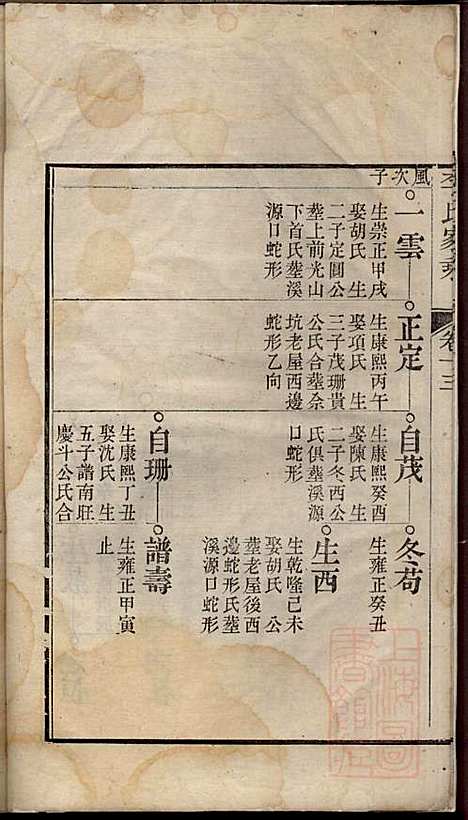 風次子
一雲
生崇正甲戌
娶胡氏 生
二子定圓公
塟上前光山
下首氏塟溪
源口蛇形
正定
生康熙丙午
娶項氏 生
三子茂珊貴
公氏合塟佘
坑老屋西邊
蛇形乙向
自茂
生康熙癸酉
娶陳氏 生
二子冬西公
氏俱塟溪源
口蛇形
冬苟
生雍正癸丑
生西
生乾隆己未
娶胡氏 公
塟老屋後西
邊蛇形氏塟
溪源口蛇形
自珊
生康熙丁丑
娶沈氏 生
五子譜南旺
慶斗公氏合
譜壽
生雍正甲寅
止
卷十三
上海圖書館藏